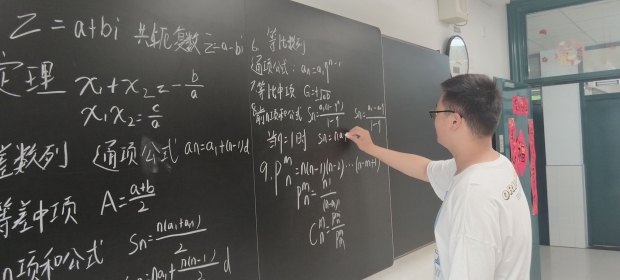 Z=a+bi 共轭复数 z̄=a-bi
定理 x₁+x₂=-b/a
x₁x₂=c/a
差数列 通项公式 an=a₁+(n-1)d
等差中项 A=(a+b)/2
n项和公式 Sn=n(a₁+an)/2
=na₁+n(n-1)/2 d
6. 等比数列
通项公式: an=a₁qⁿ⁻¹
7 等比中项 G=±√ab
前n项和公式 Sn=a₁(1-qⁿ)/1-q Sn=a₁-anq/1-q
当q=1时 Sn=na
9. Pₙᵐ=n(n-1)(n-2)…(n-m+1)
Pₙᵐ=n!/(n-m)!
Cₙᵐ=Pₙᵐ/Pₘ